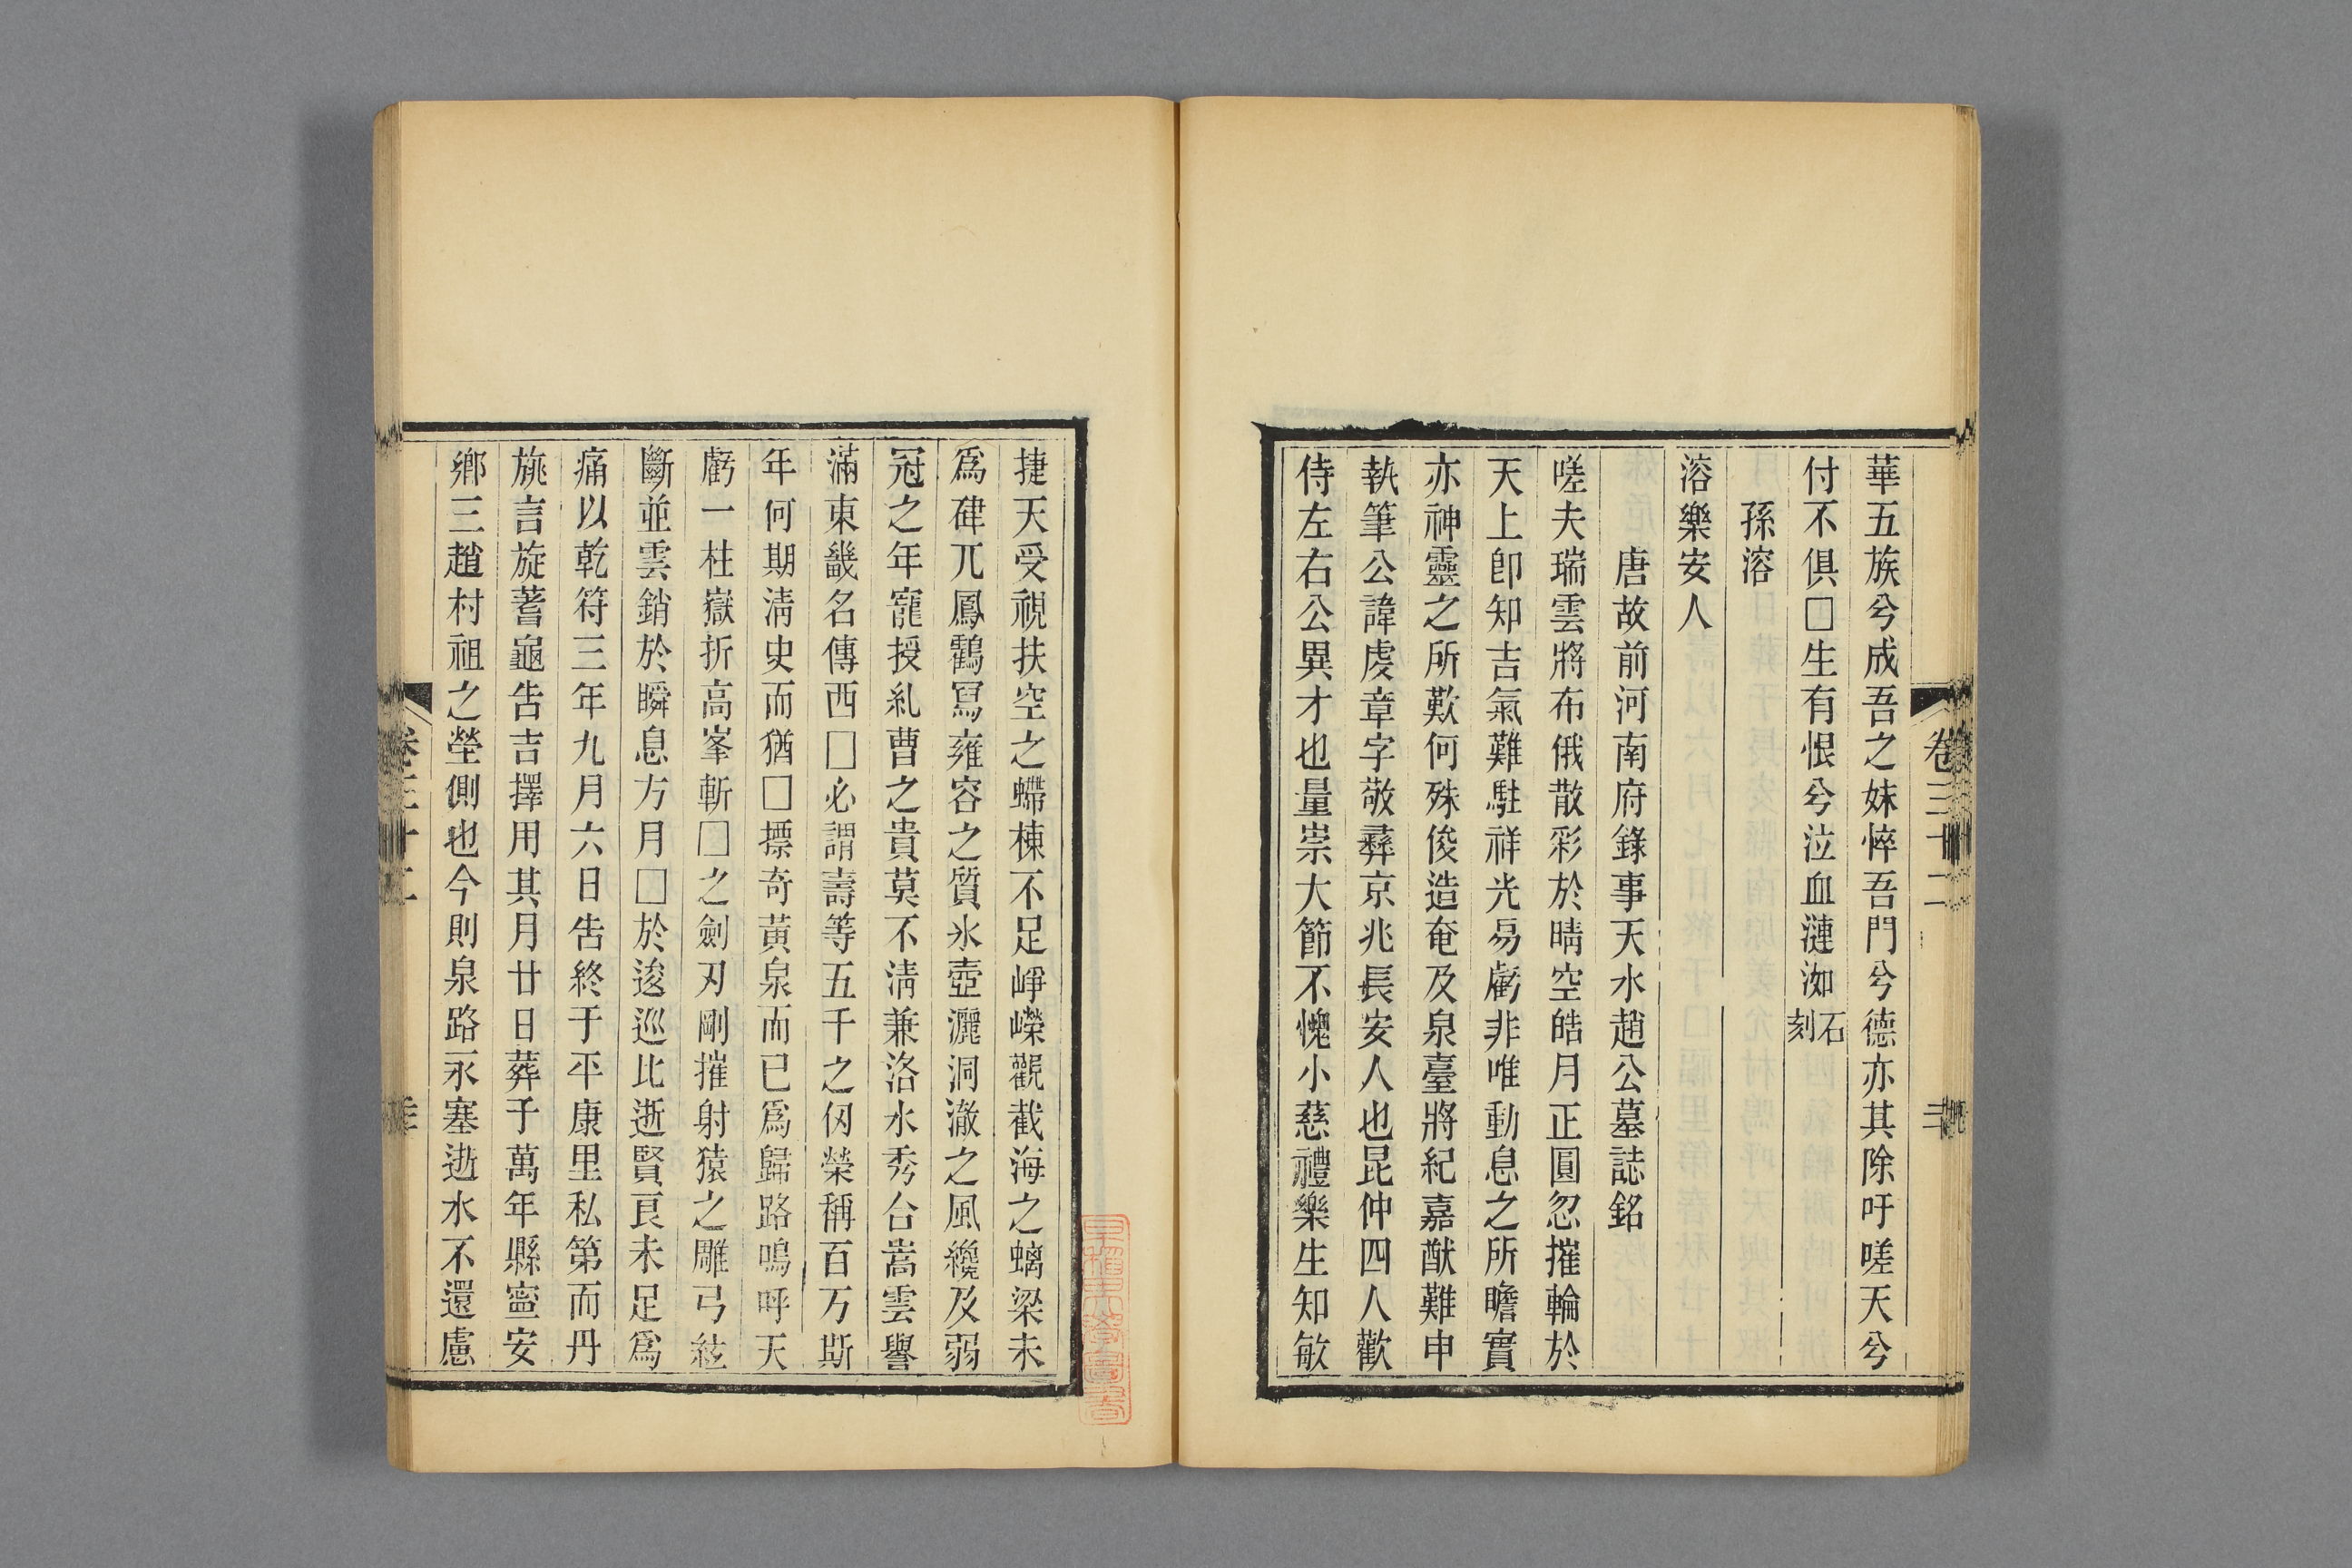 華五族兮成吾之妹悴吾門兮德亦其除吁嗟天兮
付不俱□生有恨兮泣血漣洳石刻
孫溶
溶樂安人
唐故前河南府錄事天水趙公墓誌銘
嗟夫瑞雲將布俄散彩於晴空皓月正圓忽摧輪於
天上卽知吉氣難駐祥光易虧非唯動息之所瞻實
亦神靈之所歎何殊俊造奄及泉臺將紀嘉猷難申
執筆公諱虔章字敬彝京兆長安人也昆仲四人歡
侍左右公異才也量崇大節不愧小慈禮樂生知敏
捷天受視扶空之螮棟不足崢嶸觀截海之螭梁未
爲硉兀鳳鸖寫雍容之質氷壺灑洞澈之風纔及弱
冠之年寵授糺曹之貴莫不淸兼洛水秀台嵩雲譽
滿東畿名傳西□必謂壽等五千之仭榮稱百万斯
年何期淸史而猶□摽奇黃泉而已爲歸路嗚呼天
虧一柱嶽折高峯斬□之劍刃剛摧射猿之雕弓絃
斷並雲銷於瞬息方月□於逡巡比逝賢良未足爲
痛以乾符三年九月六日告終于平康里私第而丹
旐言旋蓍龜告吉擇用其月廿日葬于萬年縣寧安
鄉三趙村祖之塋側也今則泉路永塞逝水不還慮
卷三十二